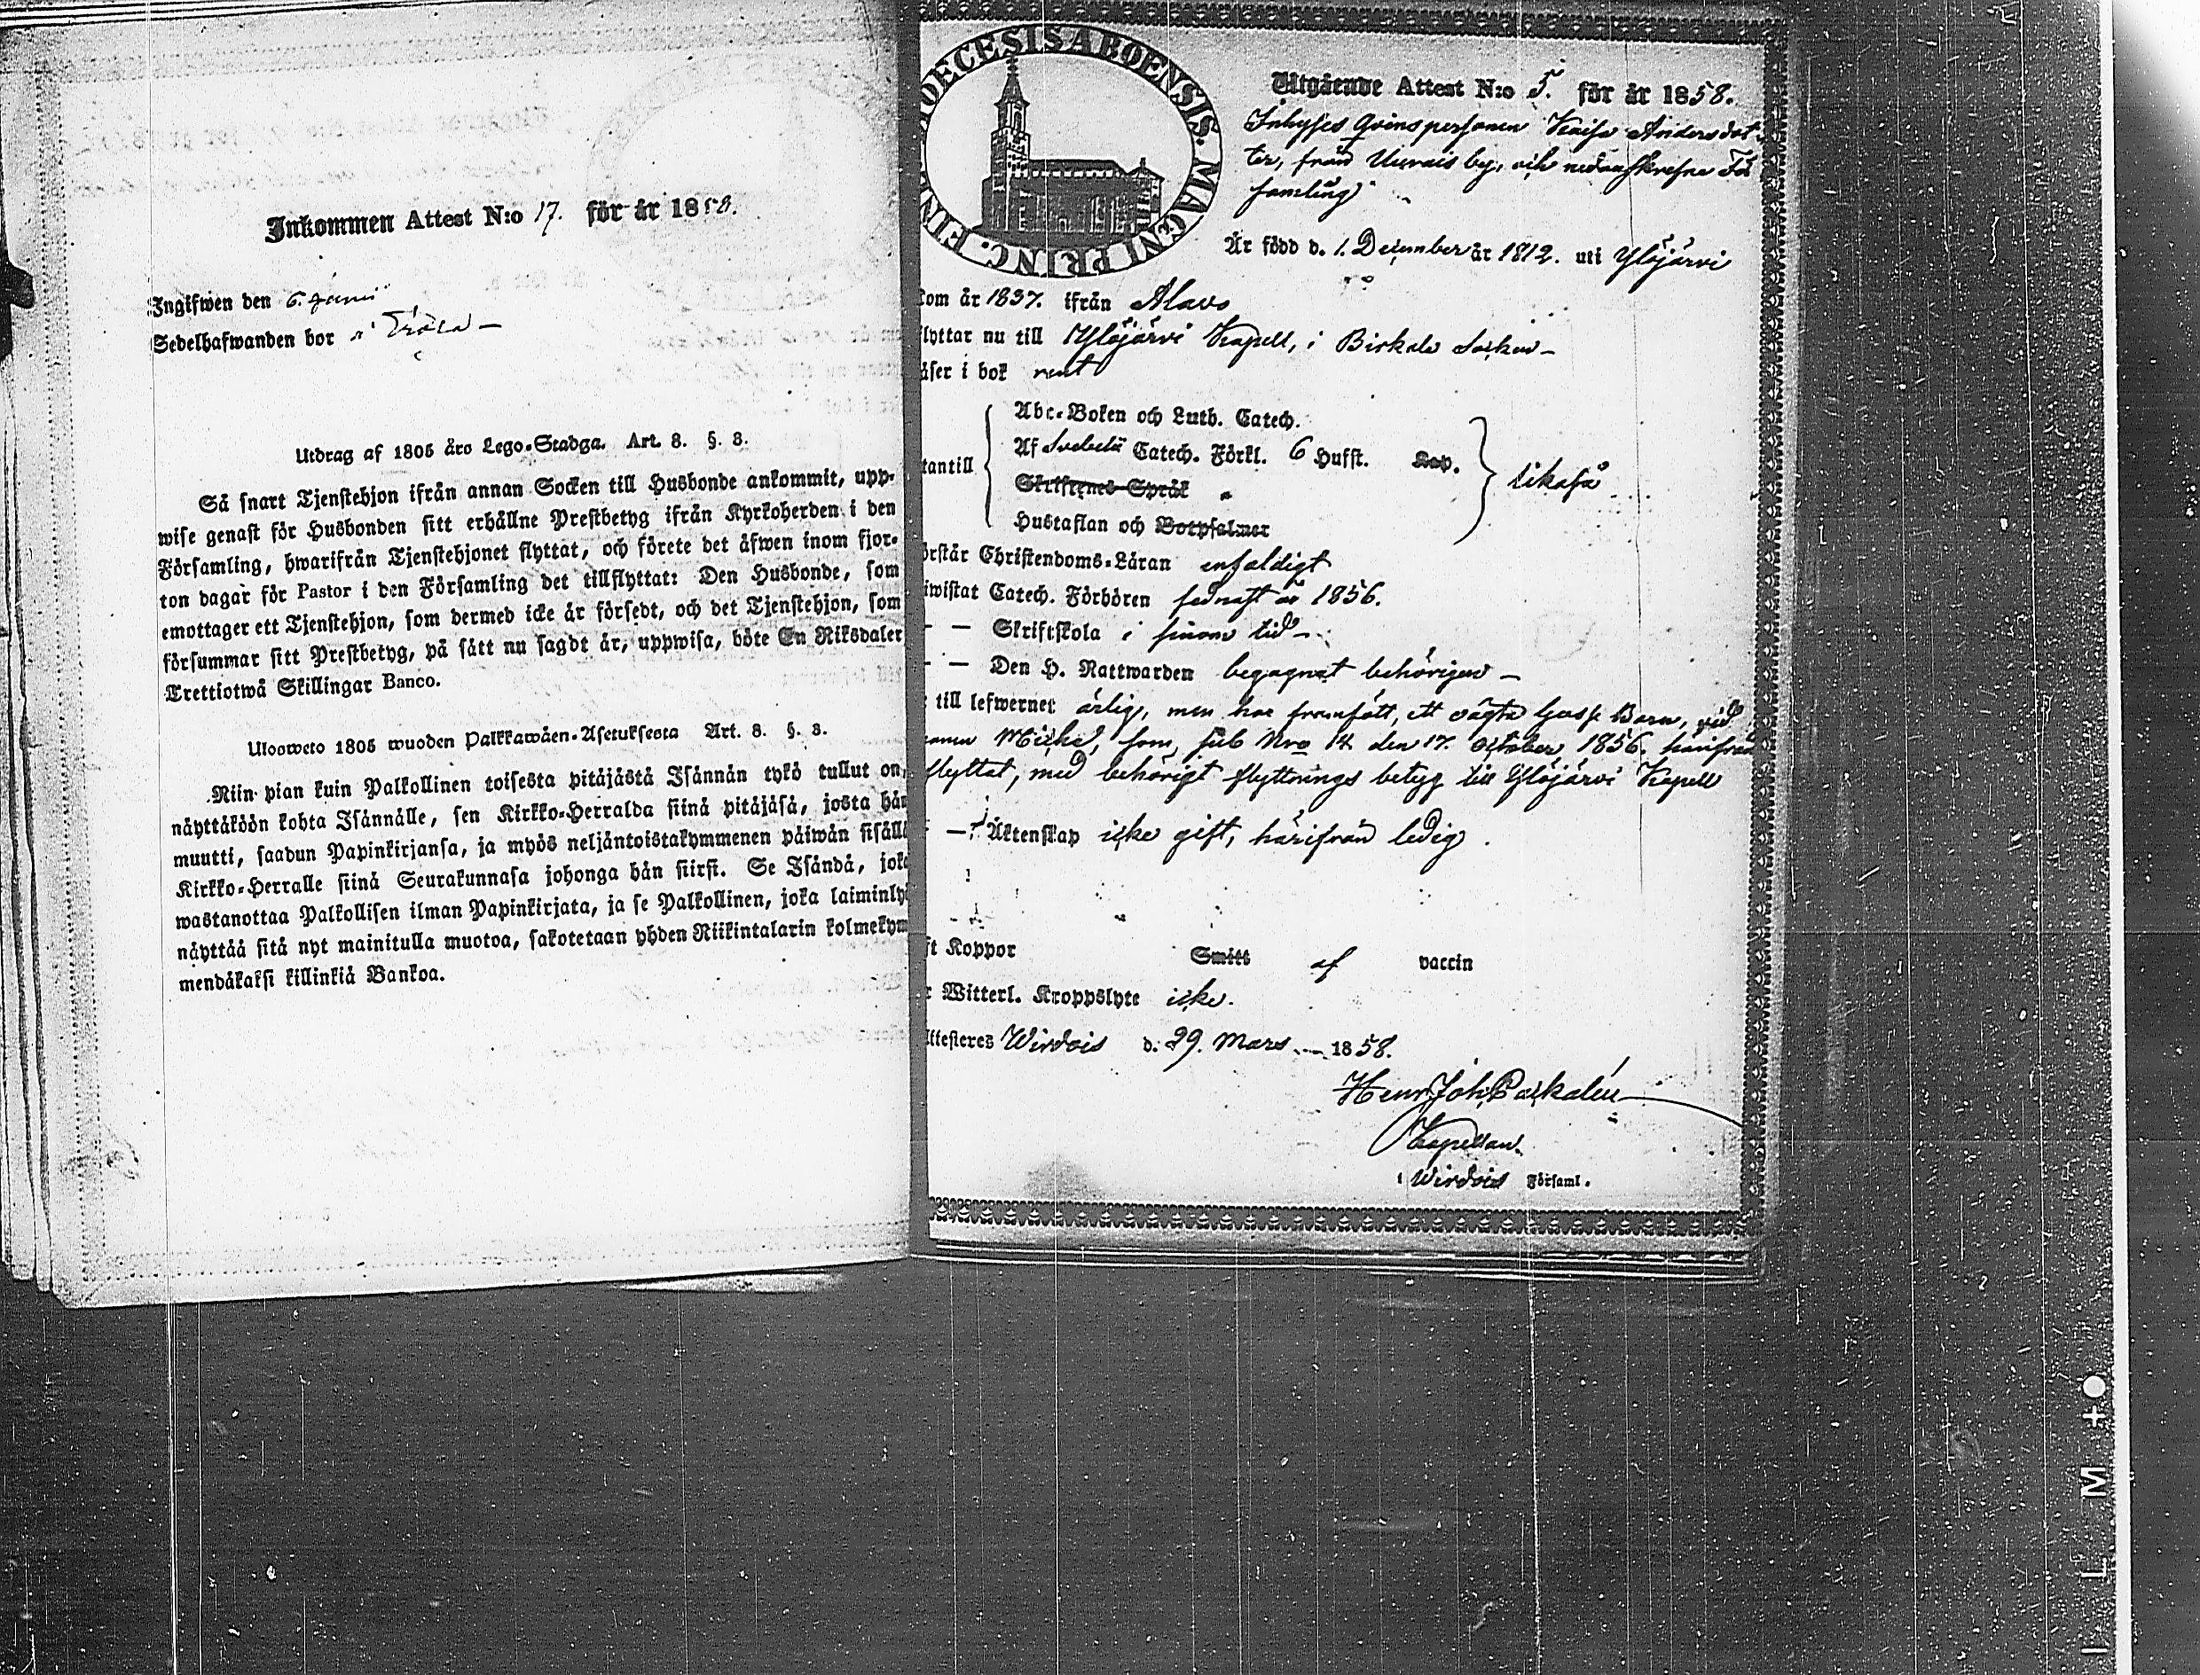 Inkommen Attest N:o 17. för år 1858.
Ingifwen den 6. Junii
Sedelhafwanden bor i
Utdrag af 1805 års Lego-Stadga. Art. 8. §. 8.
Så snart Tjenstehjon ifrån annan Socken till Husbonde ankommit, upp-
wise genast för Husbonden sitt erhållne Prestbetyg ifrån Kyrkoherden i den
Församling, hwarifrån Tjenstehjonet flyttat, och förete det äfwen inom fjor-
ton dagar för Pastor i den Församling det tillflyttat: Den Husbonde, som
emottager ett Tjenstehjon, som dermed icke är försedt, och det Tjenstehjon, som
försummar sitt Prestbetyg, på sätt nu sagdt är, uppwisa, böte En Riksdaler
Trettiotwå Skillingar Banco.
Ulosweto 1805 wuoden Palkkawäen-Asetuksesta Art. 8. §. 8.
Niin pian kuin Palkollinen toisesta pitäjästä Isännän tykö tullut on,
näyttäköön kohta Isännälle, sen Kirkko-Herralda siinä pitäjäsä, josta hän
muutti, saadun Papinkirjansa, ja myös neljäntoistakymmenen päiwän sisällä
Kirkko-Herralle siinä Seurakunnasa johonga hän siirsi. Se Isändä, joka
wastanottaa Palkollisen ilman Papinkirjata, ja se Palkollinen, joka laiminlyö
näyttää sitä nyt mainitulla muotoa, sakotetaan yhden Riikintalarin kolmekym
mendäkaksi killinkiä Bankoa.
DIOECESIS ABOENSIS. MAGNI PRINC. FIN
Utgående Attest N:o 5. för år 1858.
Inhyses Qvinspersonen Kaisa Andersdot
ter, från Uurais by, och nedanskrefne För
samling
Är född d. 1. December år 1812. uti Ylöjärvi
kom år 1837. ifrån Alavo
flyttar nu till Ylöjärvi Kapell, i Birkala Socken –
läser i bok rent
utantill
Abc-Boken och Luth. Catech.
Af Svebelii Catech. Förkl. 6 Hufst. Kap.
Skriftenes Språk
Hustaflan och Botpsalmer
likaså
örstår Christendoms-Läran enfaldigt
iwistat Catech. Förhören sednast år 1856.
– – Skriftskola i sinom tid –
– – Den H. Nattwarden begagnat behörigen –
till lefwernet ärlig, men har framfödt, ett oägta Gosse Barn, vid
namn Michel, som sub Nro 14 den 17. october 1856. härifrån
flyttat, med behörigt flyttnings betyg till Ylöjärvi Kapell
– Äktenskap icke gift, härifrån ledig.
ft Koppor Smitt af vaccin
r Witterl. Kroppslyte icke.
Attesteres Wirdois d. 29. Mars 1858.
Henr. Joh.
Kapellan
i Wirdois Församl.
I L M +